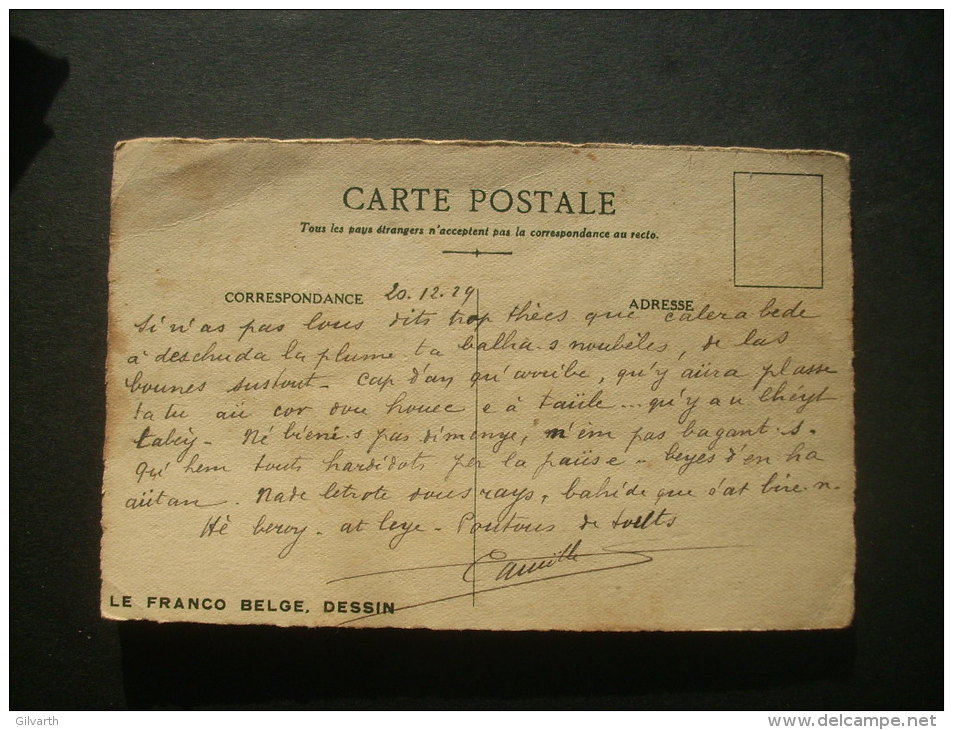 CARTE POSTALE
Tous les pays étrangers n'acceptent pas la correspondance au recto.
CORRESPONDANCE 20.12.29
ADRESSE
Si n'as pas lous dits trop thècs que calera bede
à deschuda la plume ta balha-s noubèles, de las
bounes sustout - cap d'an qu'arribe, qu'y aüra plasse
ta tu aü cor dou houec e à taüle ... qu'y au lhéyt
tabéy - Né bienes pas dimenye, n'em pas bagant-s-
qu' hem touts hardidots per la paüse - beyes d'en ha
aütan. Nade letrote dous rays, bahide que s'at bire-n-
Hè beroy - at leye - Poutous de touts
Camille
LE FRANCO BELGE, DESSIN
Gilvarth
www.delcampe.net